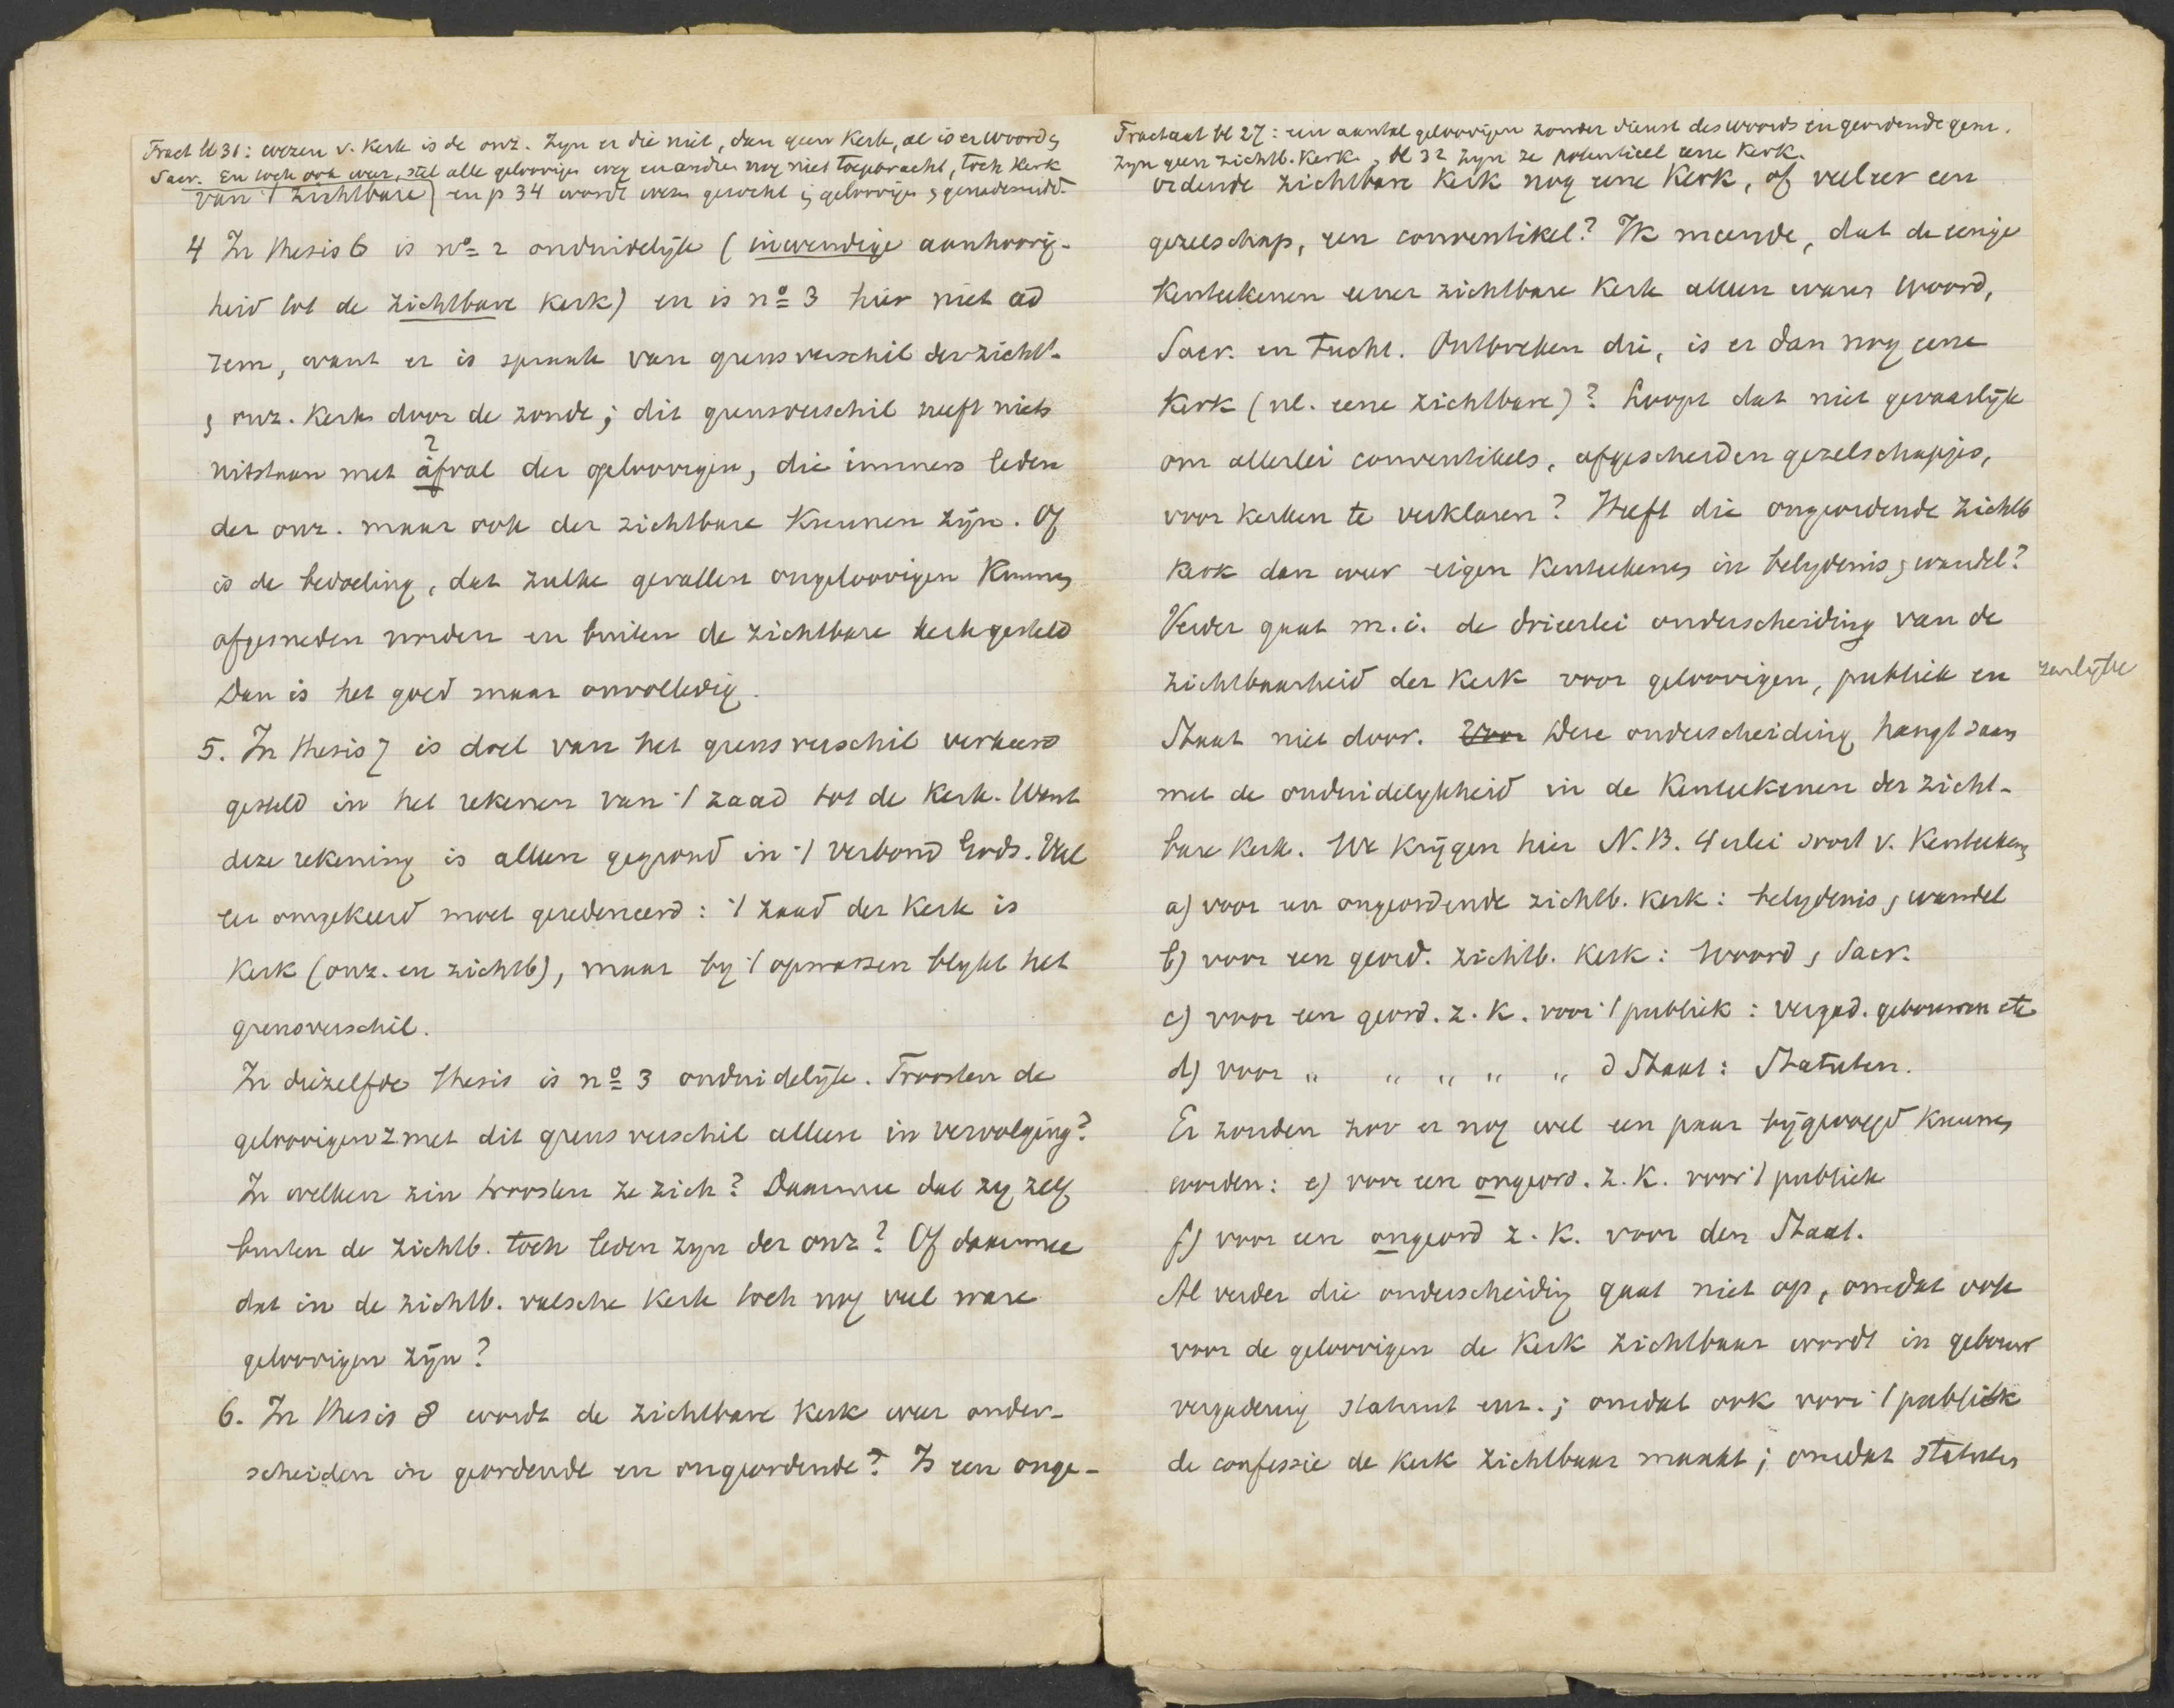 Tract bl 31: wezen v. kerk is de onz. Zyn er die niet, dan geen kerk, al is er woord &
Sacr. En toch ook weer, stel alle geloovigen weg en andren nog niet toegebracht, toch kerk
van 't zichtbare) en p 34 wordt wezen gezocht in geloovigen & genademidd.
4 In thesis 6 is no 2 onduidelijk (inwendige aanhoorig-
heid tot de zichtbare kerk) en is no 3 hier niet ad
rem, want er is spraak van grensverschil der zichtb.
& onz. Kerk door de zonde; dit grensverschil heeft niets
uitstaan met ?afval der geloovigen, die immers leden
der onz. maar ook der zichtbare kunnen zijn. Of
is de bedoeling, dat zulke gevallen ongeloovigen kunnen
afgesneden worden en buiten de zichtbare kerk gesteld
Dan is het goed maar onvolledig.
5. In thesis 7 is doel van het grensverschil verkeerd
gesteld in het rekenen van 't zaad tot de kerk. Want
deze rekening is alleen gegrond in 't verbond Gods. Wel
er omgekeerd moet geredeneerd: 't zaad der kerk is
kerk (onz. en zichtb), maar by 't opwassen blykt het
grensverschil.
In diezelfde thesis is no 3 onduidelijk. Troosten de
geloovigen z met dit grensverschil alleen in vervolging?
In welken zin troosten ze zich? Daarmee dat zy zelf
buiten de zichtb. toch leden zyn der onz? Of daarmee
dat in de zichtb. valsche kerk toch nog veel ware
geloovigen zijn?
6. In thesis 8 wordt de zichtbare kerk weer onder-
scheiden in geordende en ongeordende? Is een onge-
Tractaat bl 27: een aantal geloovigen zonder dienst des woords en geordende gem.
zyn geen zichtb. kerk, bl 32 zyn ze potentieel eene kerk.
ordende zichtbare kerk nog eene Kerk, of veeleer een
gezelschap, een conventikel? Ik meende, dat de eenige
kenteekenen eener zichtbare kerk alleen waren Woord,
Sacr. en Tucht. Ontbreken die, is er dan nog eene
kerk (nl. eene zichtbare)? Loopt dat niet gevaarlijk
om allerlei conventikels, afgescheiden gezelschapjes,
voor kerken te verklaren? Heeft die ongeordende zichtb
kerk dan weer eigen kenteekenen in belydenis & wandel?
Verder gaat m.i. de drieerlei onderscheiding van de
zichtbaarheid der kerk voor geloovigen, publiek en
Staat niet door. Voor Deze onderscheiding hangt saam
met de onduidelykheid in de kenteekenen der zicht-
bare kerk. We krijgen hier N.B. 4erlei soort v. kenteekens
a) voor een ongeordende zichtb. kerk: belydenis & wandel
b) voor een geord. zichtb. kerk: Woord & Sacr.
c) voor een geord. z. k. voor 't publiek: vergad. gebouwen etc
d) voor " " " " " d Staat: Statuten.
Er zouden zoo er nog wel een paar bijgevoegd kunnen
worden: e) voor een ongeord. z. k. voor 't publiek
f) voor een ongeord z. k. voor den Staat.
Al verder die onderscheidig gaat niet op, omdat ook
voor de geloovigen de kerk zichtbaar wordt in gebouw
vergadering statuut enz.; omdat ook voor 't publiek
de confessie de kerk zichtbaar maakt; omdat statuten